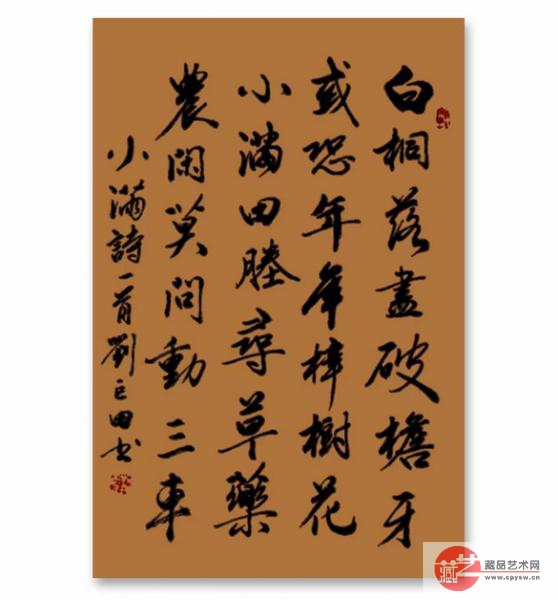 白桐落盡破檐牙
或恐年年梓樹花
小滿田塍尋草藥
農閑莫問動三車
小滿詩一首劉田书
藏艺
藏品艺术网
www.cpysw.cn